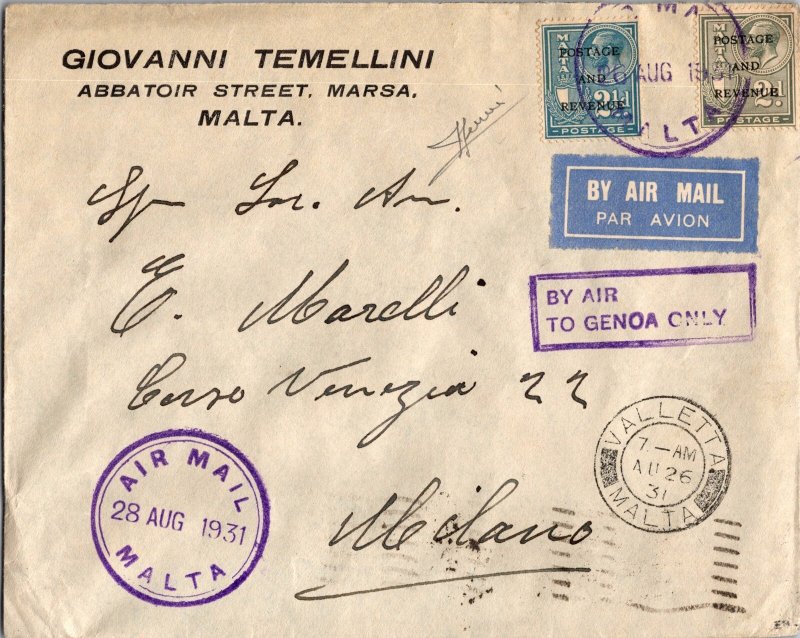 GIOVANNI TEMELLINI
ABBATOIR STREET, MARSA,
MALTA.
MALTA
POSTAGE
AND
REVENUE
2½d
POSTAGE
MALTA
POSTAGE
AND
REVENUE
2d.
POSTAGE
AUG 1931
MALTA
BY AIR MAIL
PAR AVION
BY AIR
TO GENOA ONLY
Sp. Soc. An.
E. Marelli
Corso Venezia 22
Milano
VALLETTA
7-AM
AU 26
31
MALTA
AIR MAIL
28 AUG 1931
MALTA